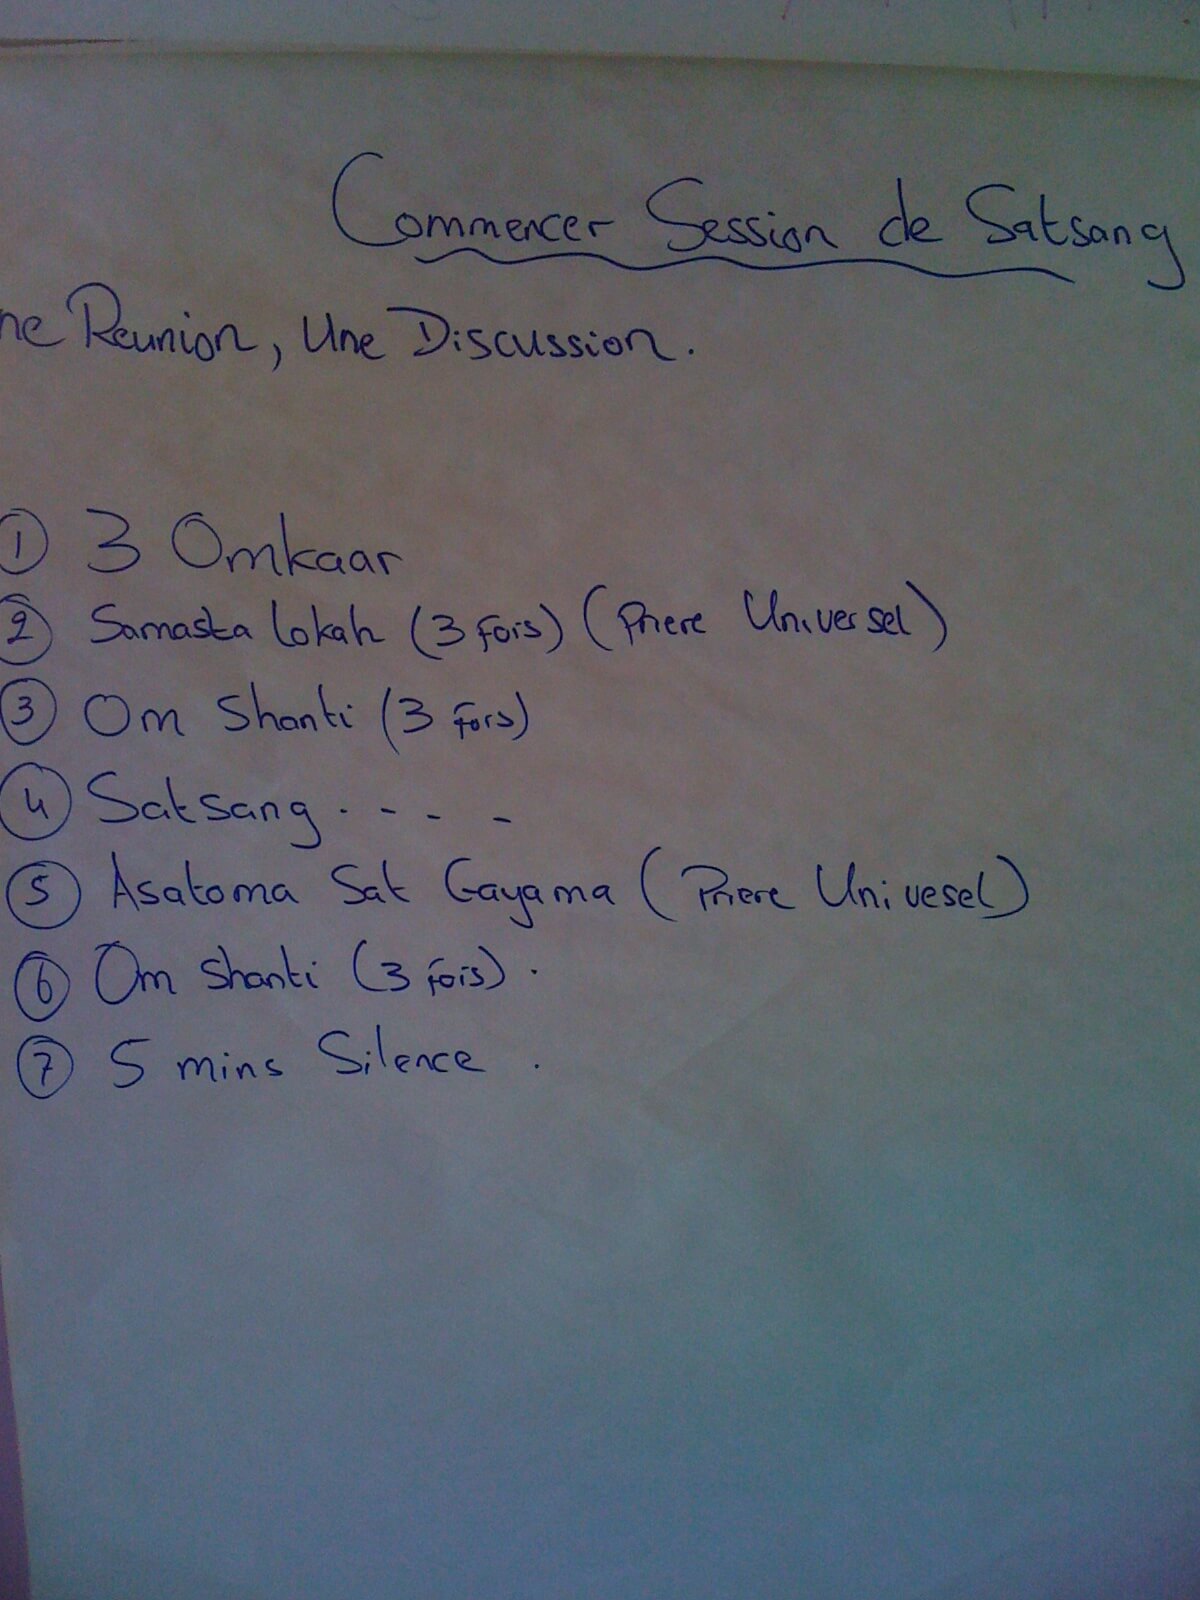 Commencer Session de Satsang
ne Reunion, Une Discussion.
1 3 Omkaar
2 Samasta Lokah (3 fois) (Priere Universel)
3 Om Shanti (3 fois)
4 Satsang . - - -
5 Asatoma Sat Gayama (Priere Univesel)
6 Om Shanti (3 fois) .
7 5 mins Silence .